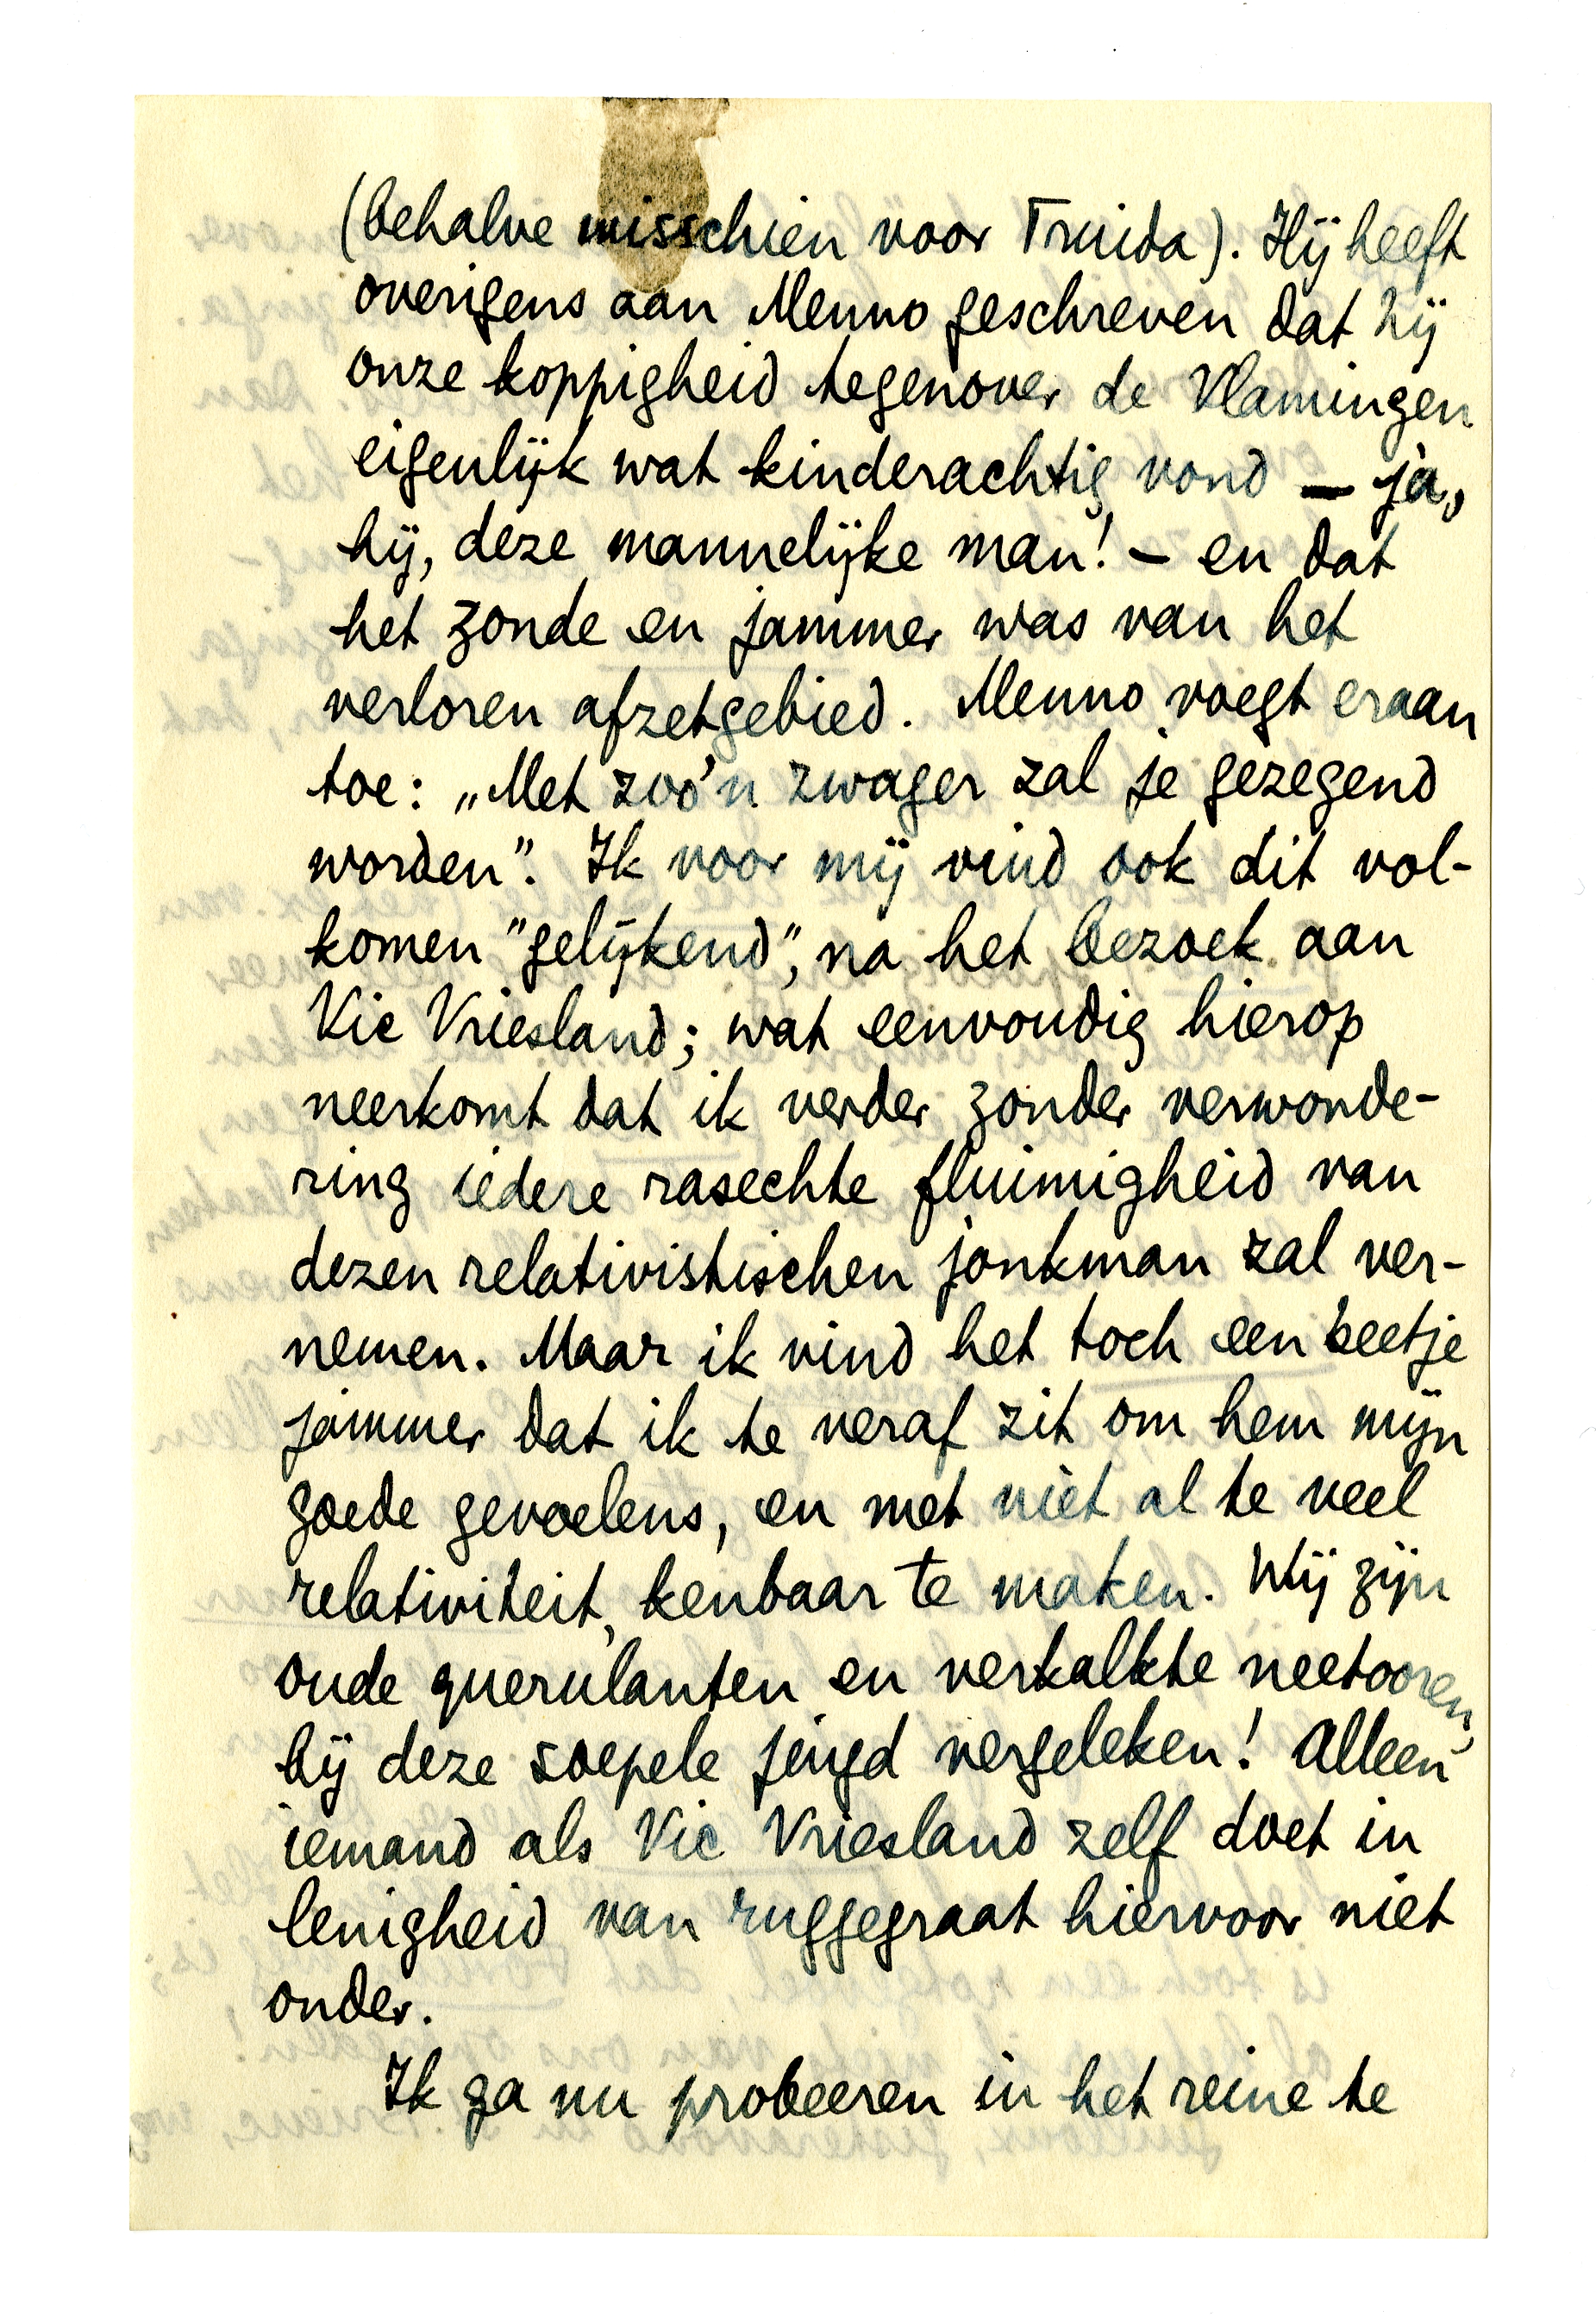 (behalve misschien voor Truida). Hij heeft
overigens aan Menno geschreven dat hij
onze koppigheid tegenover de Vlamingen
eigenlijk wat kinderachtig vond – ja,
hij, deze mannelijke man! – en dat
het zonde en jammer was van het
verloren afzetgebied. Menno voegt eraan
toe: „Met zoo'n zwager zal je gezegend
worden”. Ik voor mij vind ook dit vol-
komen "gelijkend", na het bezoek aan
Vic Vriesland; wat eenvoudig hierop
neerkomt dat ik verder zonder verwonde-
ring iedere rasechte fluimigheid van
dezen relativistischen jonkman zal ver-
nemen. Maar ik vind het toch een beetje
jammer dat ik te veraf zit om hem mijn
goede gevoelens, en met niet al te veel
relativiteit, kenbaar te maken. Wij zijn
oude querulanten en verkalkte neetooren,
bij deze soepele jeugd vergeleken! Alleen
iemand als Vic Vriesland zelf doet in
lenigheid van ruggegraat hiervoor niet
onder.
Ik ga nu probeeren in het reine te